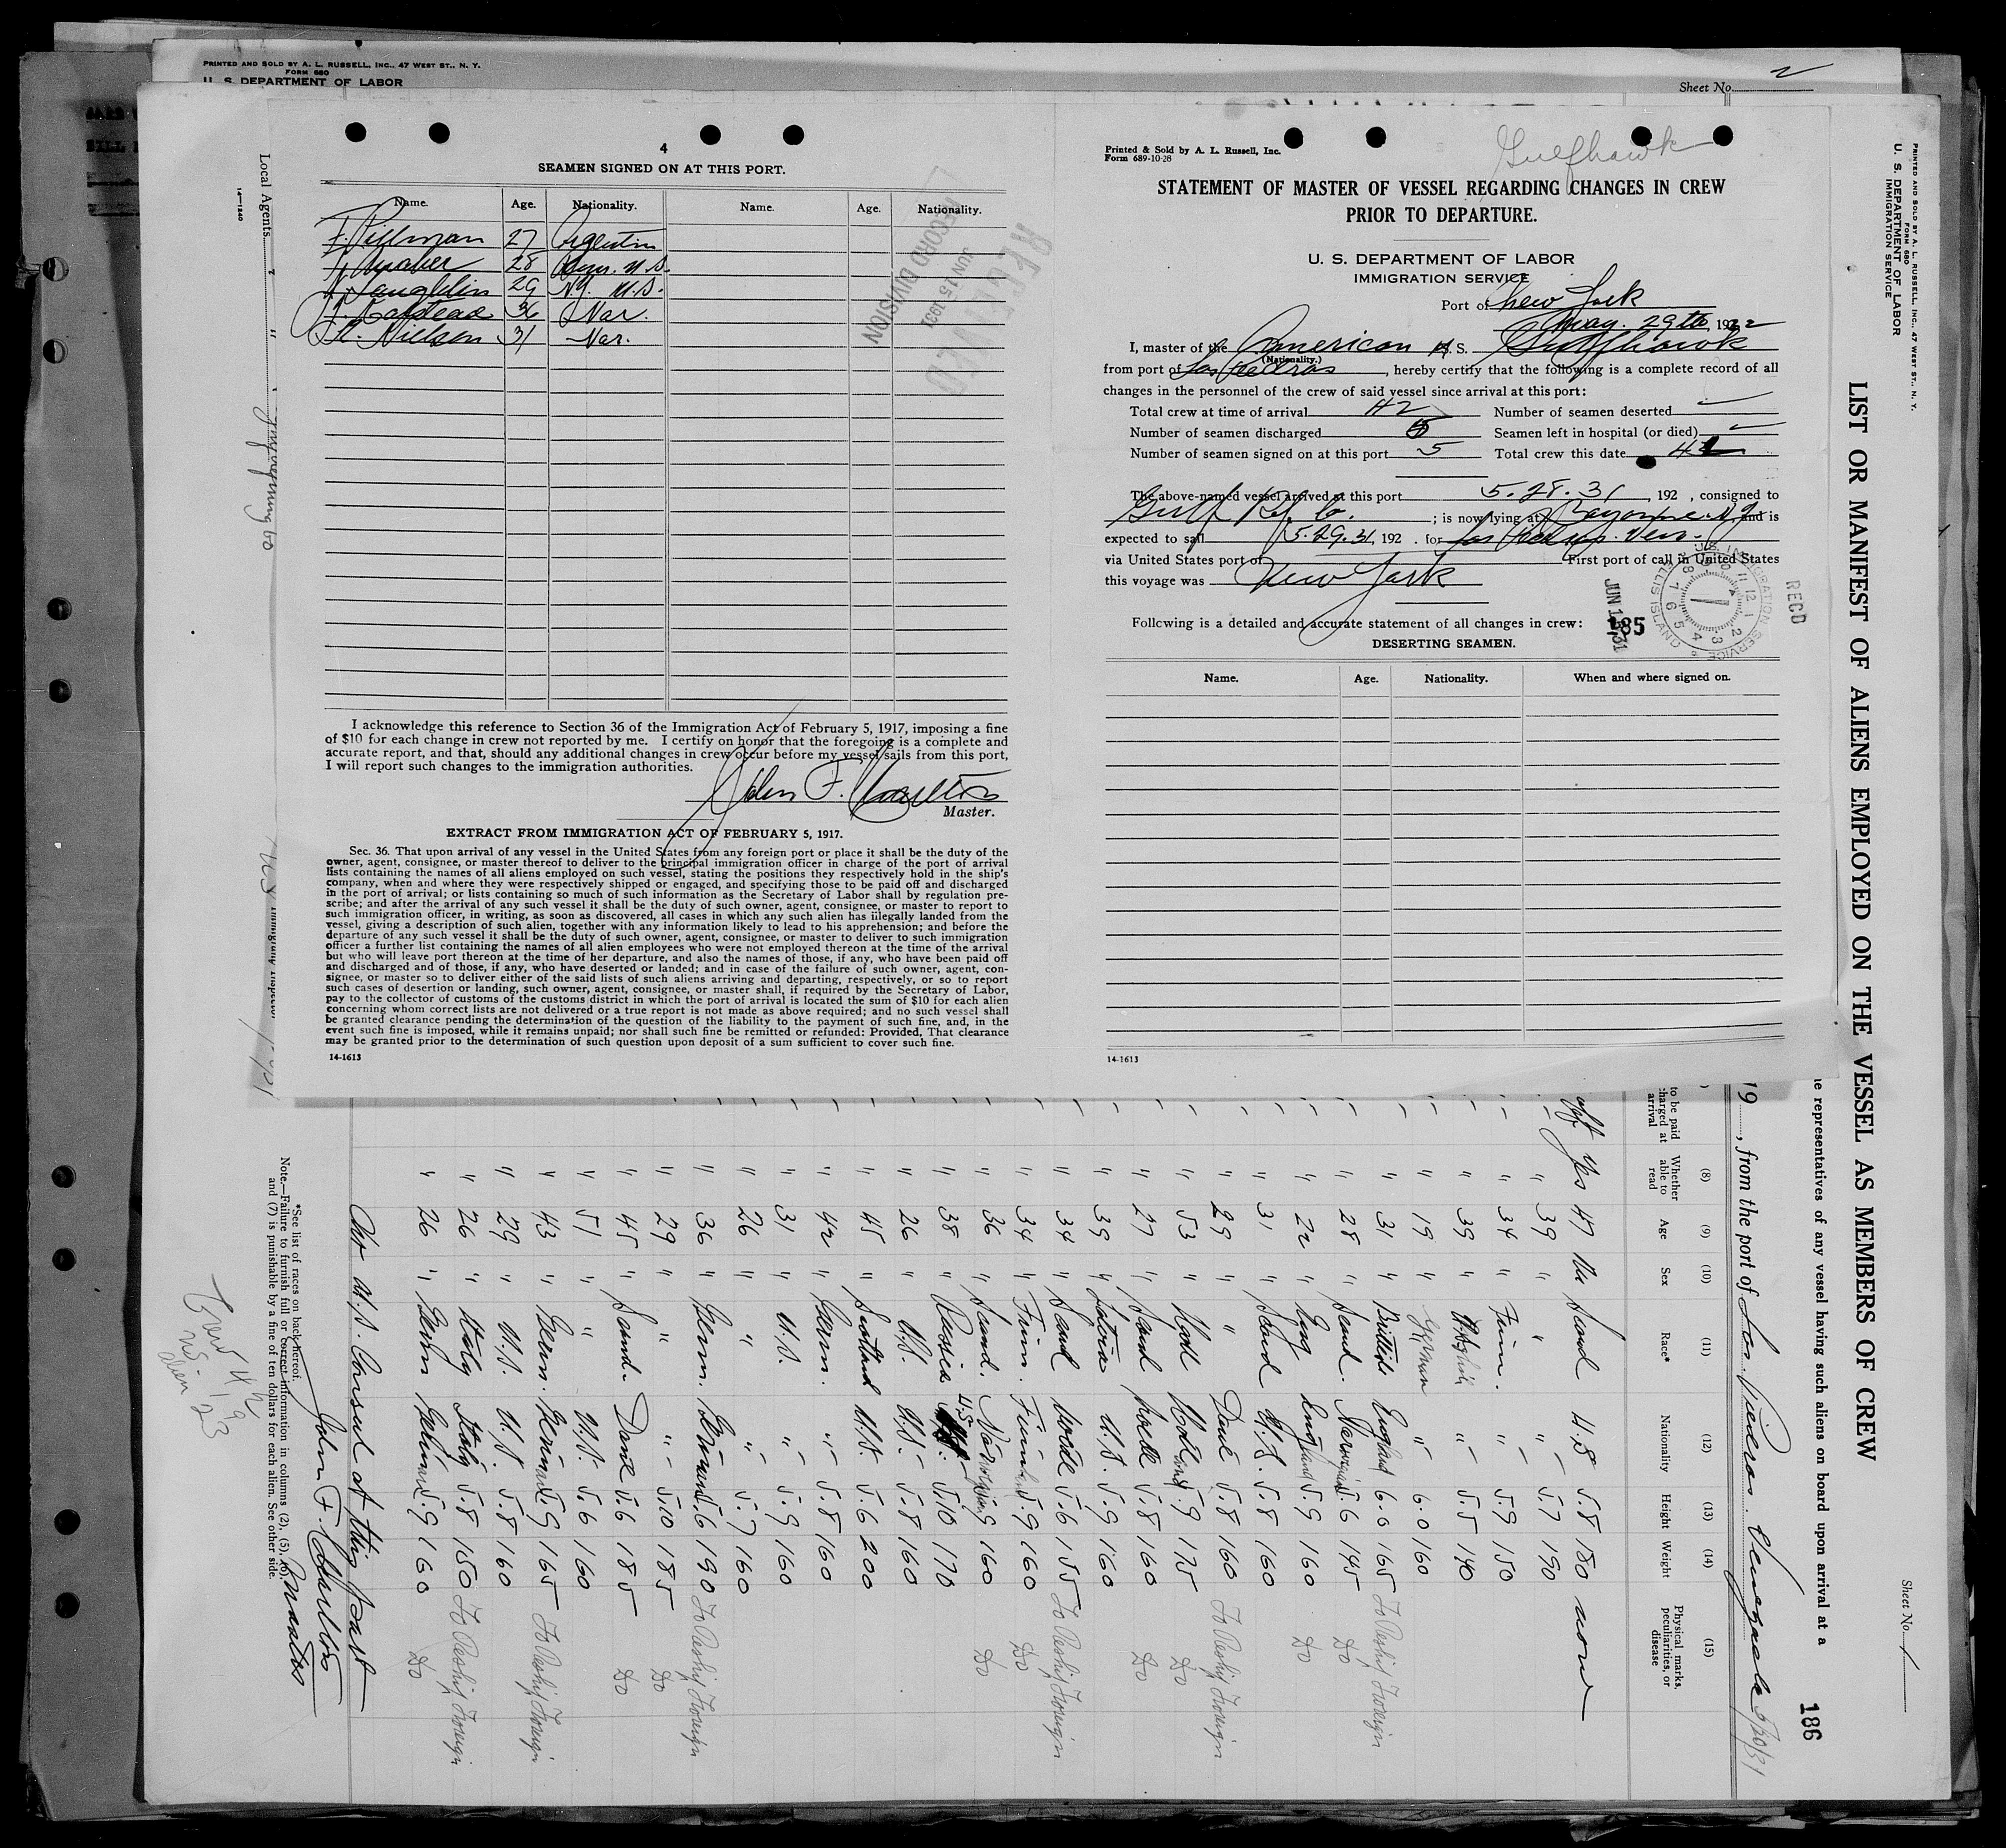 PRINTED AND SOLD BY A. L. RUSSELL, INC., 47 WEST ST., N. Y.
FORM 680
U. S. DEPARTMENT OF LABOR
Sheet No. 2
4
SEAMEN SIGNED ON AT THIS PORT.
Name. Age. Nationality. Name. Age. Nationality.
27 Argentin
28 U.S.
29 N.Y. U.S.
36 Nor.
Nielson 31 Nor.
RECEIVED
JUN 15 1931
RECORD DIVISION
I acknowledge this reference to Section 36 of the Immigration Act of February 5, 1917, imposing a fine
of $10 for each change in crew not reported by me. I certify on honor that the foregoing is a complete and
accurate report, and that, should any additional changes in crew occur before my vessel sails from this port,
I will report such changes to the immigration authorities.
John F. Charlton
Master.
EXTRACT FROM IMMIGRATION ACT OF FEBRUARY 5, 1917.
Sec. 36. That upon arrival of any vessel in the United States from any foreign port or place it shall be the duty of the
owner, agent, consignee, or master thereof to deliver to the principal immigration officer in charge of the port of arrival
lists containing the names of all aliens employed on such vessel, stating the positions they respectively hold in the ship's
company, when and where they were respectively shipped or engaged, and specifying those to be paid off and discharged
in the port of arrival; or lists containing so much of such information as the Secretary of Labor shall by regulation pre-
scribe; and after the arrival of any such vessel it shall be the duty of such owner, agent, consignee, or master to report to
such immigration officer, in writing, as soon as discovered, all cases in which any such alien has illegally landed from the
vessel, giving a description of such alien, together with any information likely to lead to his apprehension; and before the
departure of any such vessel it shall be the duty of such owner, agent, consignee, or master to deliver to such immigration
officer a further list containing the names of all alien employees who were not employed thereon at the time of the arrival
but who will leave port thereon at the time of her departure, and also the names of those, if any, who have been paid off
and discharged and of those, if any, who have deserted or landed; and in case of the failure of such owner, agent, con-
signee, or master so to deliver either of the said lists of such aliens arriving and departing, respectively, or so to report
such cases of desertion or landing, such owner, agent, consignee, or master shall, if required by the Secretary of Labor,
pay to the collector of customs of the customs district in which the port of arrival is located the sum of $10 for each alien
concerning whom correct lists are not delivered or a true report is not made as above required; and no such vessel shall
be granted clearance pending the determination of the question of the liability to the payment of such fine, and, in the
event such fine is imposed, while it remains unpaid; nor shall such fine be remitted or refunded: Provided, That clearance
may be granted prior to the determination of such question upon deposit of a sum sufficient to cover such fine.
14-1613
Printed & Sold by A. L. Russell, Inc.
Form 689-10-28
Gulfhawk
STATEMENT OF MASTER OF VESSEL REGARDING CHANGES IN CREW
PRIOR TO DEPARTURE.
U. S. DEPARTMENT OF LABOR
IMMIGRATION SERVICE
Port of New York
May 29th, 192
I, master of the American S. S. Gulfhawk
(Nationality.)
from port of Las Piedras, hereby certify that the following is a complete record of all
changes in the personnel of the crew of said vessel since arrival at this port:
Total crew at time of arrival 42 Number of seamen deserted
Number of seamen discharged 5 Seamen left in hospital (or died)
Number of seamen signed on at this port 5 Total crew this date 42
The above-named vessel arrived at this port 5.28.31, 192 , consigned to
Gulf Ref. Co. ; is now lying at Bayonne N.J. and is
expected to sail 5.29.31, 192 . for Las Piedras. Ven.
via United States port of First port of call in United States
this voyage was New York
Following is a detailed and accurate statement of all changes in crew:
185
RECD
U.S. IMMIGRATION SERVICE
ELLIS ISLAND
DESERTING SEAMEN.
Name. Age. Nationality. When and where signed on.
14-1613
Local Agents
14-1240
PRINTED AND SOLD BY A. L. RUSSELL, INC., 47 WEST ST., N. Y.
FORM 680
U. S. DEPARTMENT OF LABOR
IMMIGRATION SERVICE
Sheet No. 1
LIST OR MANIFEST OF ALIENS EMPLOYED ON THE VESSEL AS MEMBERS OF CREW
186
representatives of any vessel having such aliens on board upon arrival at a
19 , from the port of Las Piedras Venezuela 5/20/31
to be paid
charged at
arrival
(8) Whether able to read
(9) Age
(10) Sex
(11) Race*
(12) Nationality
(13) Height
(14) Weight
(15) Physical marks, peculiarities, or disease
Yes 47 M Scand U.S 5.8 180 none
" 39 " " " 5.7 190
" 34 " Finn. " 5.9 150
" 39 " " 5.5 140
" 19 " German " 6.0 160
" 31 " British England 6.0 165 To Reship Foreign
" 28 " Scand. Norwegian 5.6 145 Do
" 22 " Eng England 5.9 160 Do
" 31 " Scand U.S. 5.8 160
" 29 " " Dane 5.8 160 To Reship Foreign
" 53 " 5.9 175 Do
" 27 " Scand 5.8 160 Do
" 39 " Latvia U.S. 5.9 160
" 34 " Scand 5.6 155 To Reship Foreign
" 34 " Finn. 5.9 160 Do
" 36 " Scand. 5.9 160 Do
" 38 " Russia U.S. 5.10 170
" 26 " U.S. U.S. 5.8 160
" 45 " Scotland U.S 5.6 200
" 42 " Germ. " 5.8 160
" 31 " U.S. " 5.9 160
" 26 " " " 5.7 160
" 36 " Germ. German 5.6 190 To Reship Foreign
" 29 " " " 5.10 185 Do
" 45 " Scand. Dane 5.6 185 Do
" 51 " " U.S. 5.6 160
" 43 " Germ. German 5.9 165 To Reship Foreign
" 29 " U.S. U.S. 5.8 160
" 26 " Italy Italy 5.8 150 To Reship Foreign
" 26 " Germ German 5.9 160 Do
No U.S. Consul at this port
John F. Charlton
Master
*See list of races on back hereof.
Note.—Failure to furnish full or correct information in columns (2), (5), (6),
and (7) is punishable by a fine of ten dollars for each alien. See other side.
Crew 42
US 19
alien 23